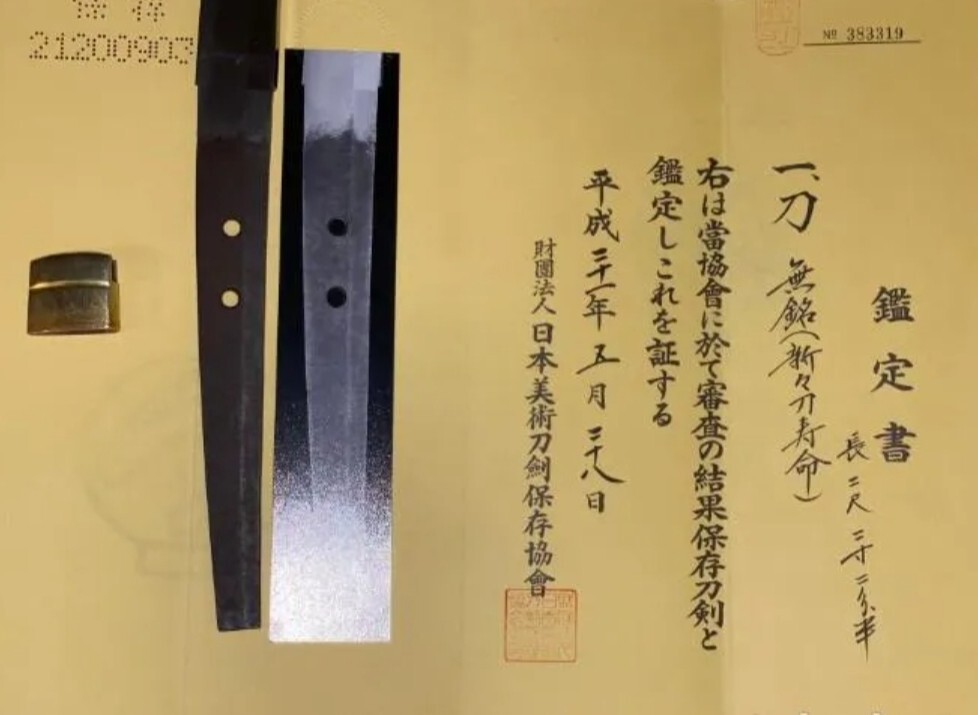 № 383319
鑑定書
長二尺三寸二分半
一、刀 無銘(新々刀寿命)
右は當協會に於て審査の結果保存刀剣と
鑑定しこれを証する
平成二十一年五月二十八日
財團法人日本美術刀劍保存協會
21200903